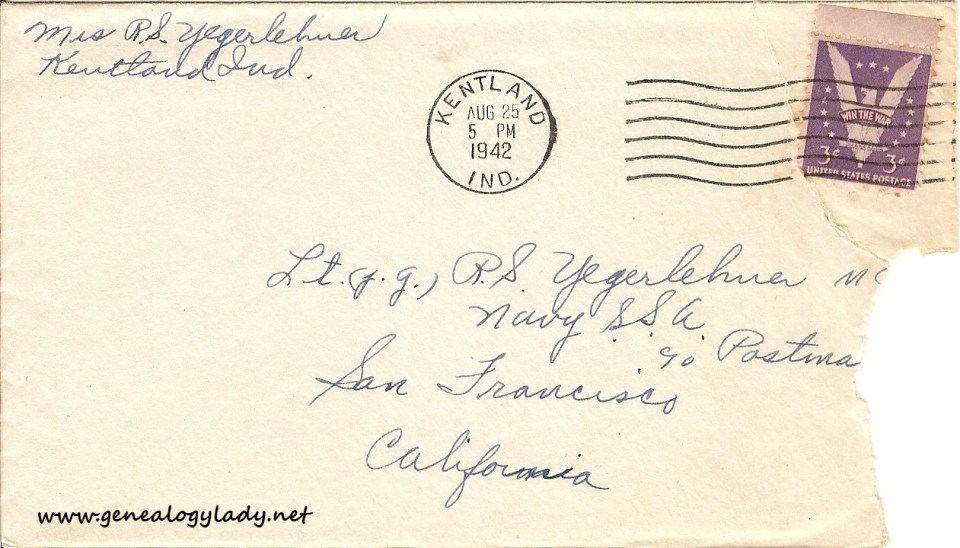 Mrs R.S. Yegerlehner
Kentland Ind.
KENTLAND
AUG 25
5 PM
1942
IND.
WIN THE WAR
3¢ 3¢
UNITED STATES POSTAGE
Lt. (j.g.) R.S. Yegerlehner
Navy
c/o Postma
San Francisco
California
www.genealogylady.net